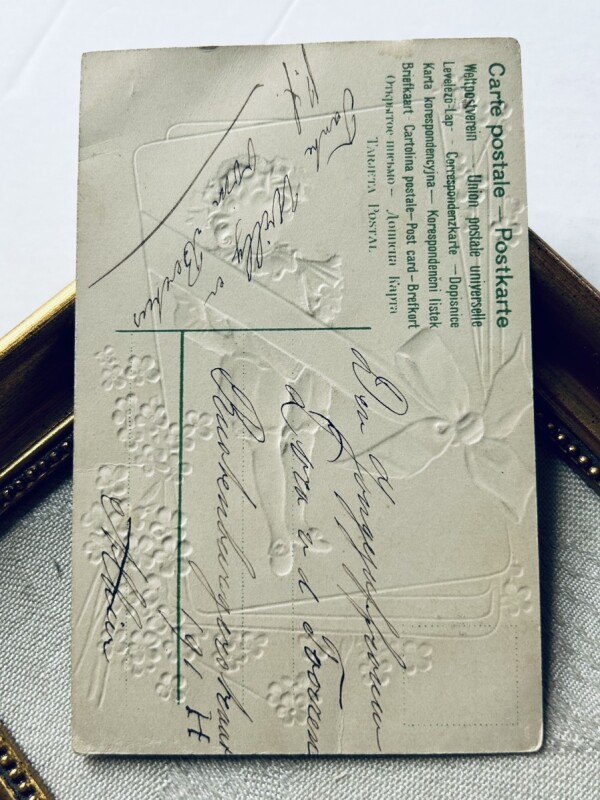 Carte postale — Postkarte
Weltpostverein — Union postale universelle
Levelező-Lap — Correspondenzkarte — Dopisnice
Karta korespondencyjna — Korespondenční listek
Briefkaart - Cartolina postale - Post card - Brefkort
Открытое письмо — Дописна Карта
Tarjeta Postal
Willy en
Bertus
Den Jongejuffrouw
v d
191
Alhier